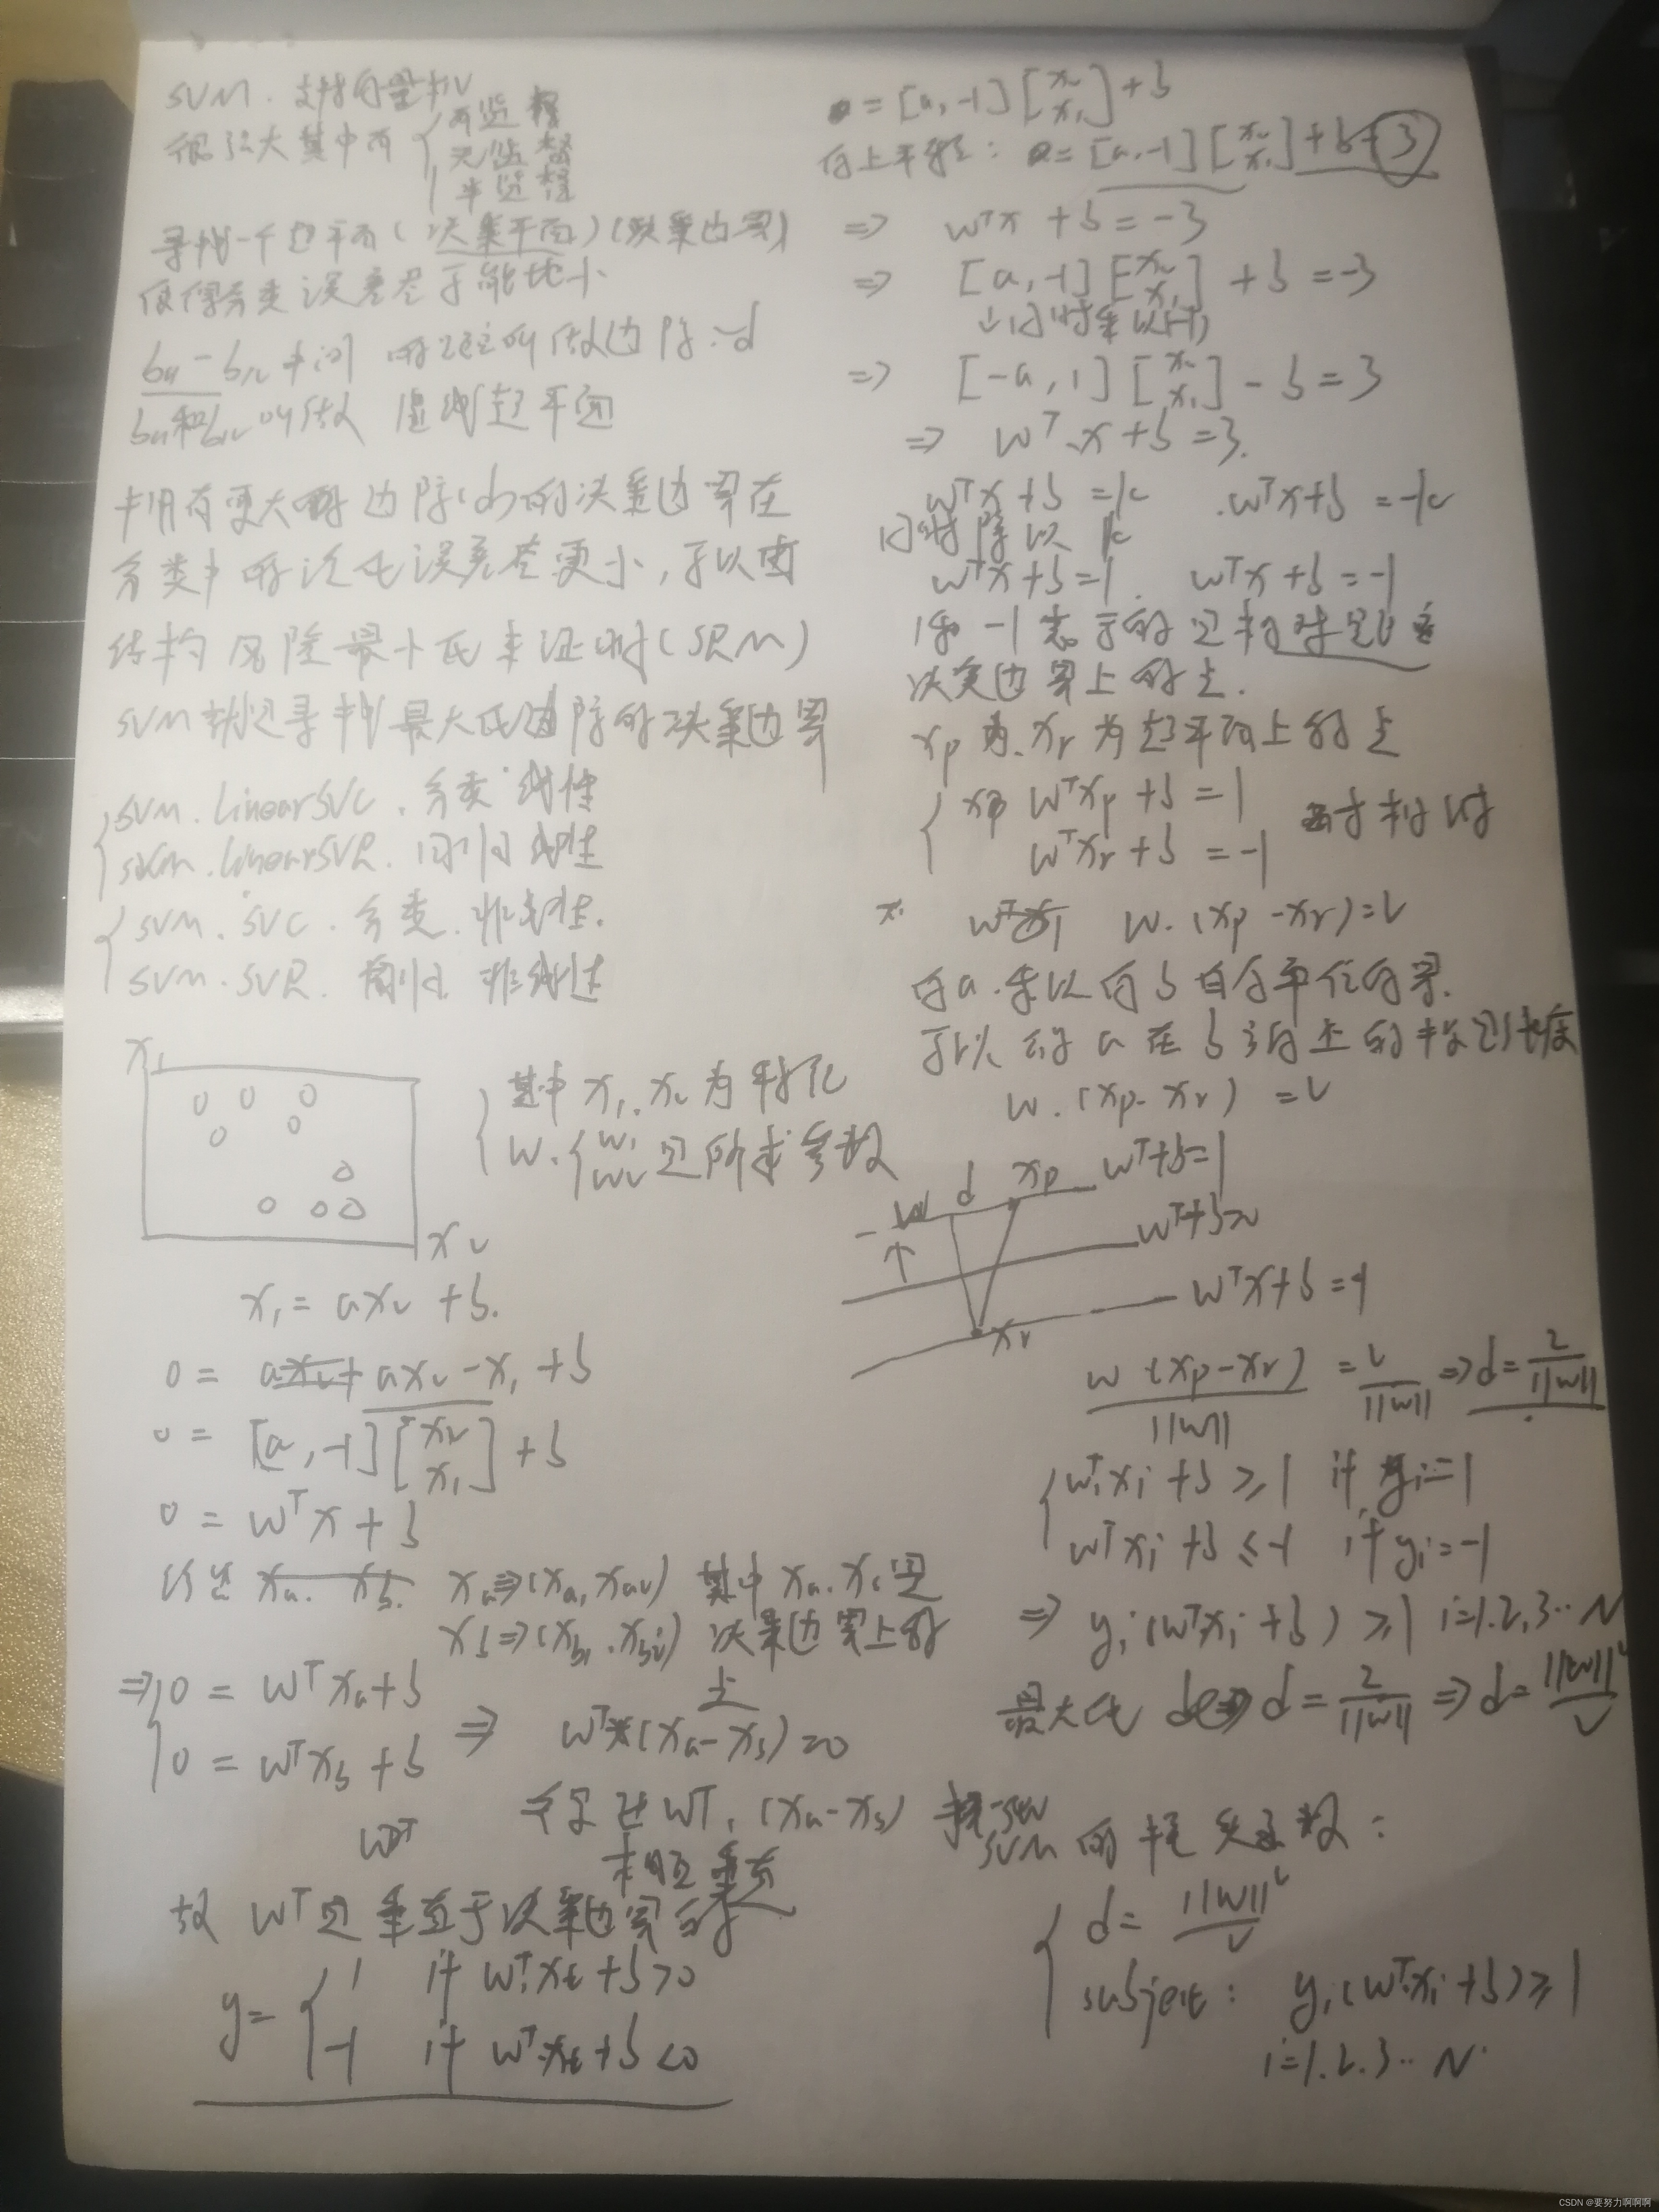 SVM. 支持向量机
很强大其中有 { 有监督
无监督
半监督
寻找一个超平面(决策平面)(决策边界)
使得分类误差尽可能地小
b11-b12中间的距离叫做边际:d
b11和b12叫做 虚线超平面
拥有更大的边际(d)的决策边界在
分类中的泛化误差更小,可以由
结构风险最小化来证明(SRM)
SVM就是寻找最大化边际的决策边界
SVM.LinearSVC. 分类 线性
SVM.LinearSVR. 回归 线性
SVM.SVC. 分类. 非线性.
SVM.SVR. 回归. 非线性
x1
x2
其中x1.x2为特征
w.{w1 w2 是所求参数
x1= ax2 +b.
0 = ax2-x1+b
0 = [a,-1][x2 x1]+b
0 = wᵀx+b
xa⇒(xa1,xa2) 其中xa.xb是
xb⇒(xb1.xb2) 决策边界上的
点
⇒ { 0 = wᵀxa+b
0 = wᵀxb+b
⇒ wᵀ(xa-xb)=0
wᵀ.(xa-xb)
相互垂直
故 wᵀ是垂直于决策边界的
y= { 1 if wᵀ.xt+b>0
-1 if wᵀ.xt+b<0
= [a,-1][x2 x1]+b
向上平移: 0=[a,-1][x2 x1]+b+3
⇒ wᵀx+b=-3
⇒ [a,-1][x2 x1]+b=-3
↓同时乘以(-1)
⇒ [-a,1][x2 x1]-b=3
⇒ wᵀ.x+b=3.
wᵀx+b=k .wᵀx+b=-k
同时除以k
wᵀx+b=1. wᵀx+b=-1
决策边界上的点.
xp为.xr为超平面上的点
{ xp wᵀxp+b=1
wᵀxr+b=-1 两式相减
w.(xp-xr)=2
向a.乘以向b自身单位向量.
可以得a在b方向上的投影长度
w.(xp-xr)=2
d xp wᵀ+b=1
w
wᵀx+b=-1
xr
w.(xp-xr)/||w|| = 2/||w|| ⇒ d=2/||w||
{ wᵀ.xi+b≥1 if yi=1
wᵀxi+b≤-1 if yi=-1
⇒ yi(wᵀxi+b)≥1 i=1.2.3..N
最大化 d=2/||w|| ⇒ d=||w||²/2
SVM的损失函数:
{ d=||w||²/2
subject: yi(wᵀ.xi+b)≥1
i=1.2.3..N
CSDN @要努力啊啊啊